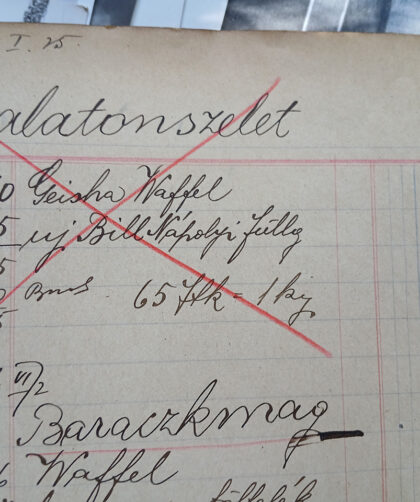 I. 25.
alatonszelet
0 Geisha Waffel
5 uj Bill Nápolyi füllg
5
65 Stk = 1 kg
VII/2
Baraczkmag
Waffel